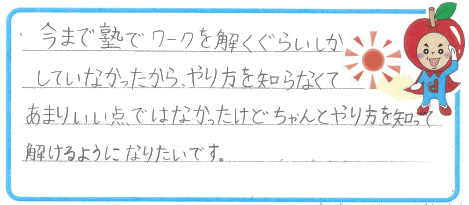 今まで塾でワークを解くぐらいしか
していなかったから、やり方を知らなくて
あまりいい点ではなかったけどちゃんとやり方を知って
解けるようになりたいです。